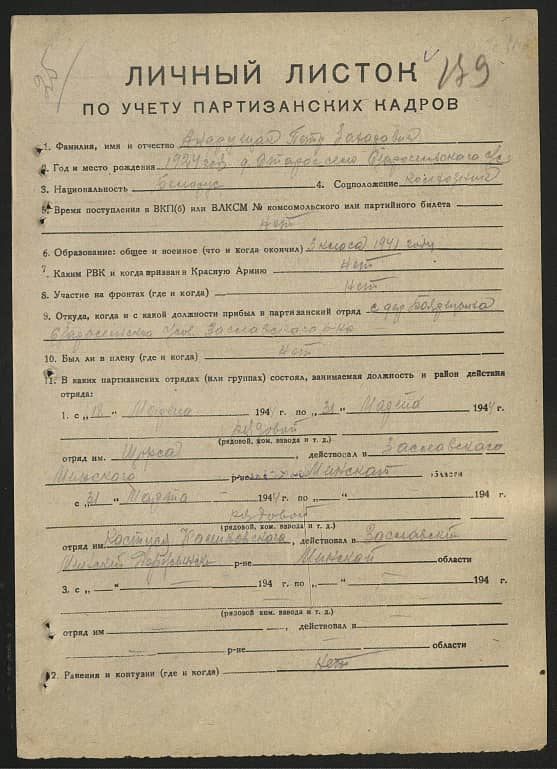 179
ЛИЧНЫЙ ЛИСТОК
ПО УЧЕТУ ПАРТИЗАНСКИХ КАДРОВ
1. Фамилия, имя и отчество Петр
2. Год и место рождения 1924 год д.
3. Национальность белорус 4. Соцположение колхозник
5. Время поступления в ВКП(б) или ВЛКСМ № комсомольского или партийного билета
Нет
6. Образование: общее и военное (что и когда окончил) 1941 году
7. Каким РВК и когда призван в Красную Армию Нет
8. Участие на фронтах (где и когда) Нет
9. Откуда, когда и с какой должности прибыл в партизанский отряд с дер.
Заславского р-на
10. Был ли в плену (где и когда) Нет
11. В каких партизанских отрядах (или группах) состоял, занимаемая должность и район действия
отряда:
1. с „18 " Марта 1944 г. по „31 " Марта 1944
рядовой
(рядовой, ком. взвода и т. д.)
отряд им. Щорса , действовал в Заславского
Минского р- Минской области
с „31 " Марта 1944 г. по „ " 194
рядовой
(рядовой, ком. взвода и т. д.)
отряд им Кастуся Калиновского, действовал в Заславский
р-не Минской области
3. с „ " 194 г. по „ " 194 г.
(рядовой ком. взвода и т. д.)
отряд им , действовал в
р-не области
12. Ранения и контузии (где и когда) Нет